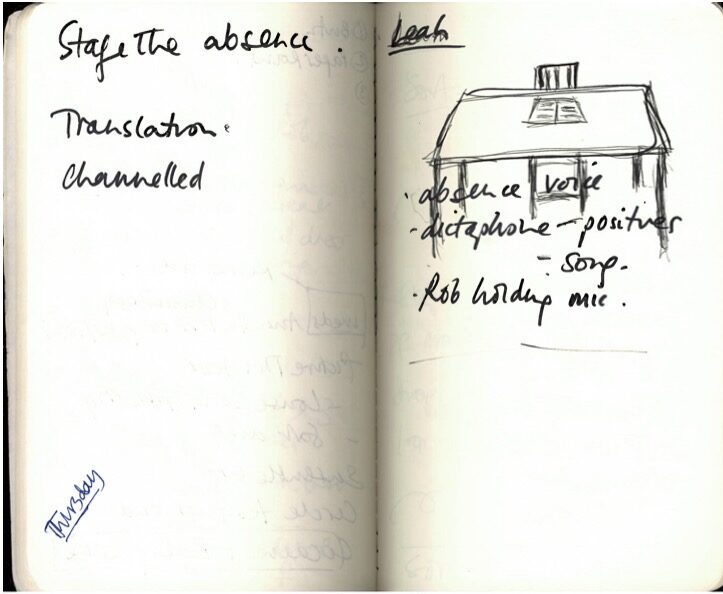 Stage The absence.
Translation.
Channelled
Thursday
Leah
· absence voice
· dictaphone – positives
– song.
· Rob holding mic.